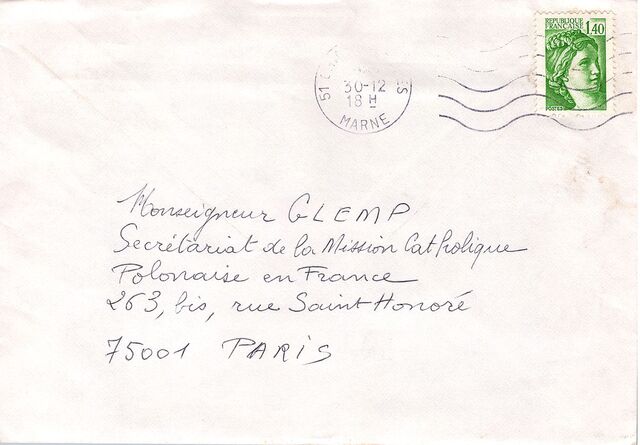 REPUBLIQUE
FRANÇAISE 1,40
51
30-12
18 H
MARNE
Monseigneur GLEMP
Secrétariat de la Mission Catholique
Polonaise en France
263, bis, rue Saint Honoré
75001 PARIS